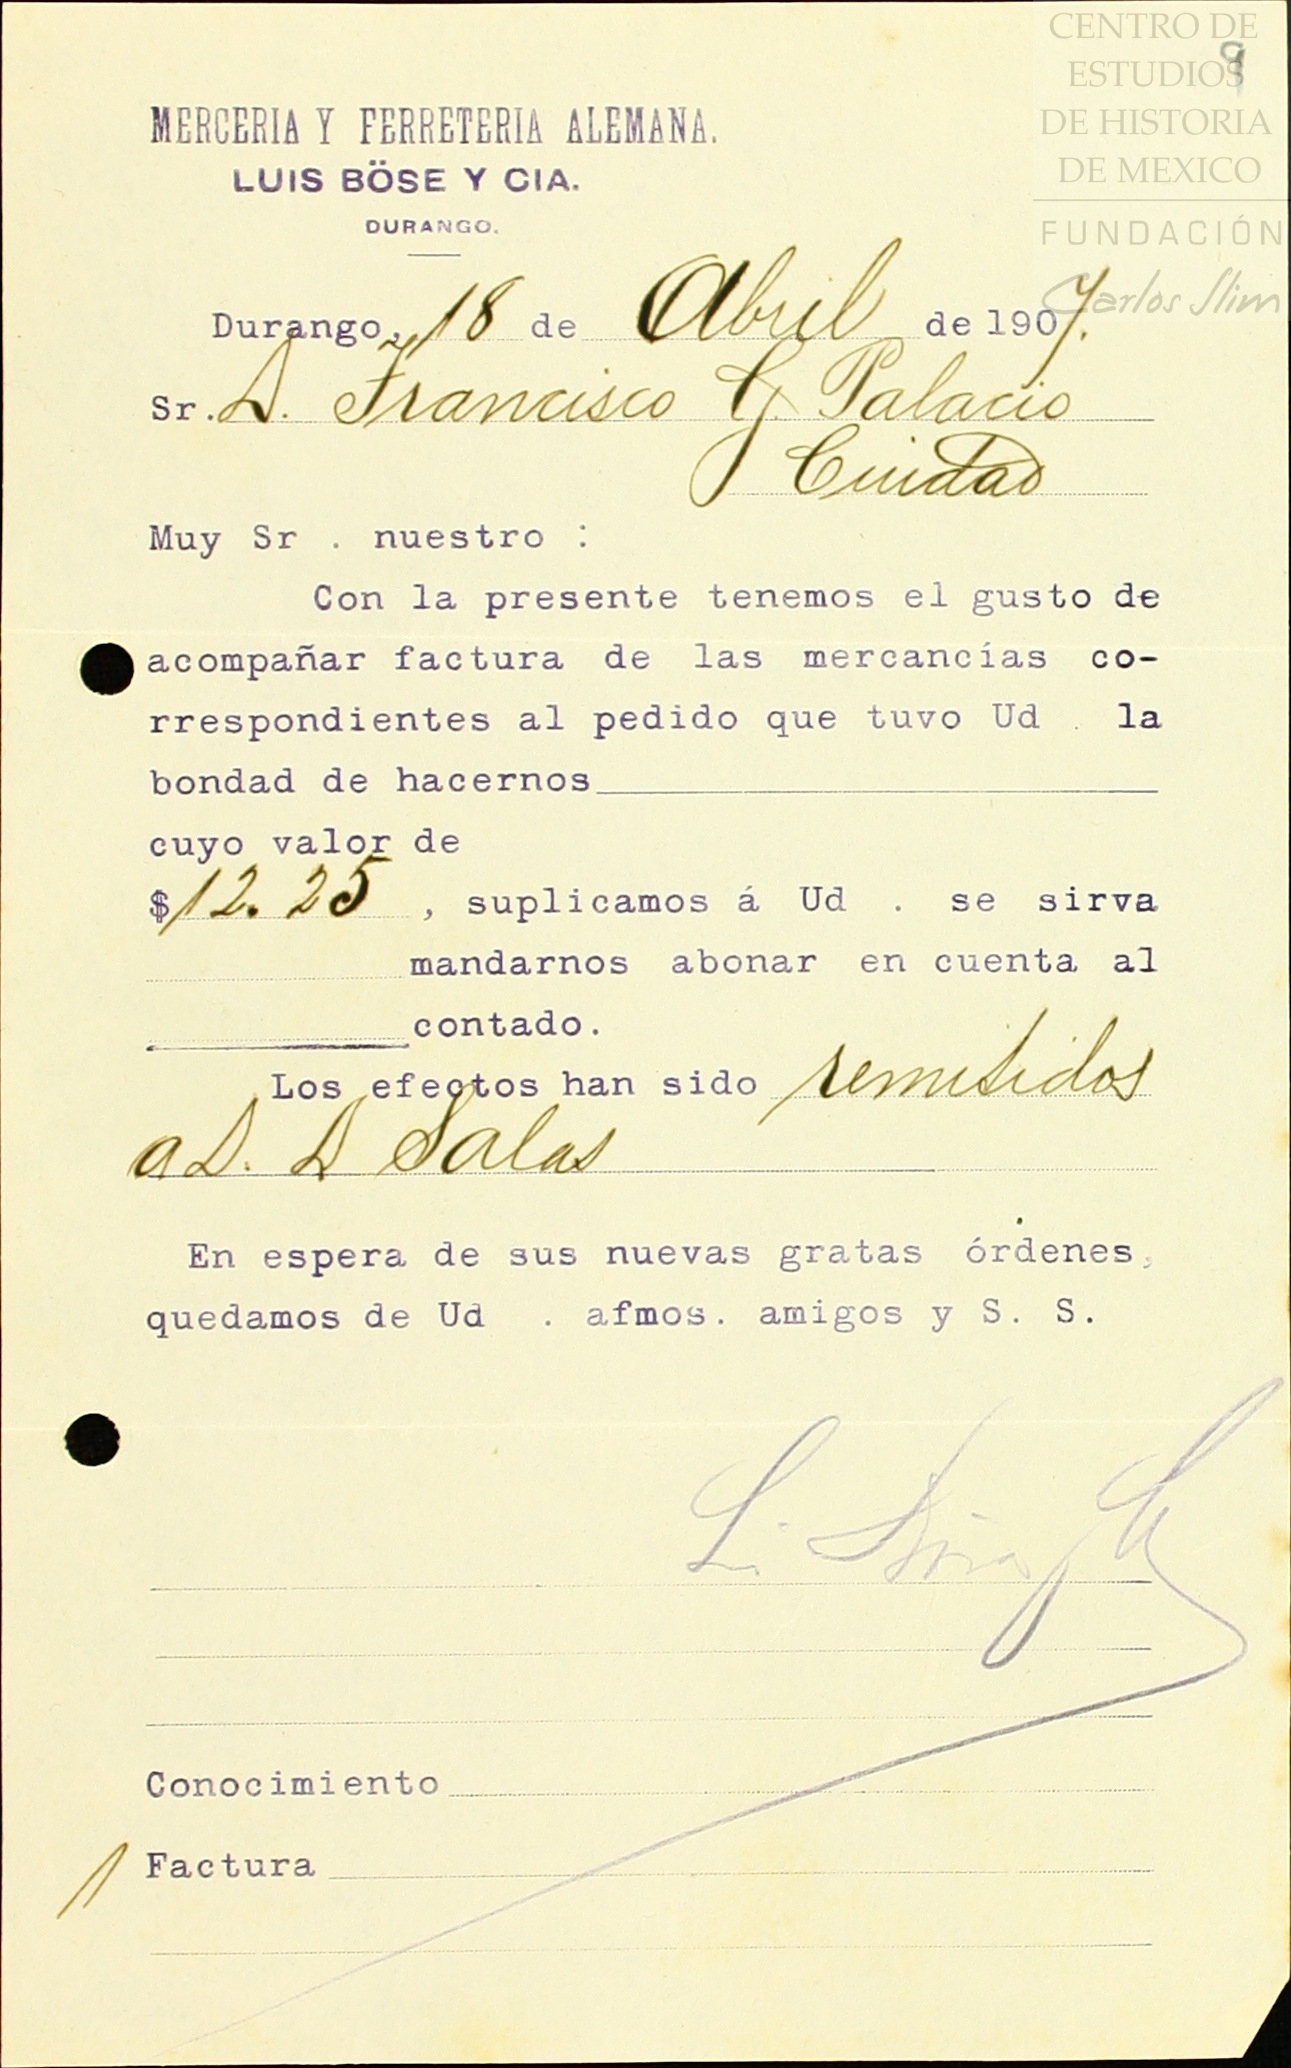 CENTRO DE
ESTUDIOS
DE HISTORIA
DE MEXICO
FUNDACIÓN
Carlos Slim
9
MERCERIA Y FERRETERIA ALEMANA.
LUIS BÖSE Y CIA.
DURANGO.
Durango, 18 de Abril de 1907.
Sr. D. Francisco G. Palacio
Ciudad
Muy Sr . nuestro :
Con la presente tenemos el gusto de
acompañar factura de las mercancías co-
rrespondientes al pedido que tuvo Ud . la
bondad de hacernos
cuyo valor de
$12.25 , suplicamos á Ud . se sirva
mandarnos abonar en cuenta al
contado.
Los efectos han sido remitidos
a D. D Salas
En espera de sus nuevas gratas órdenes,
quedamos de Ud . afmos. amigos y S. S.
L.
Conocimiento
1 Factura